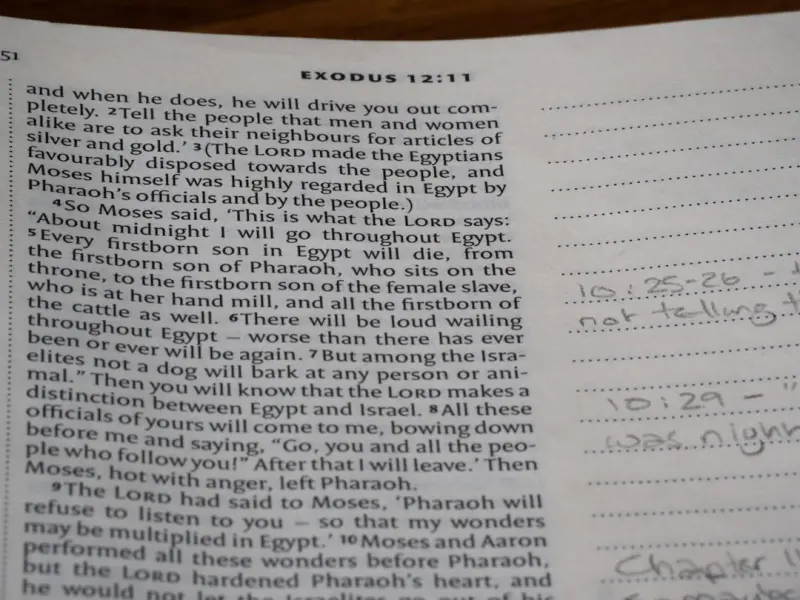 51
EXODUS 12:11
and when he does, he will drive you out com-
pletely. 2Tell the people that men and women
alike are to ask their neighbours for articles of
silver and gold.' 3(The LORD made the Egyptians
favourably disposed towards the people, and
Moses himself was highly regarded in Egypt by
Pharaoh's officials and by the people.)
4So Moses said, 'This is what the LORD says:
"About midnight I will go throughout Egypt.
5Every firstborn son in Egypt will die, from
the firstborn son of Pharaoh, who sits on the
throne, to the firstborn son of the female slave,
who is at her hand mill, and all the firstborn of
the cattle as well. 6There will be loud wailing
throughout Egypt – worse than there has ever
been or ever will be again. 7But among the Isra-
elites not a dog will bark at any person or ani-
mal." Then you will know that the LORD makes a
distinction between Egypt and Israel. 8All these
officials of yours will come to me, bowing down
before me and saying, "Go, you and all the peo-
ple who follow you!" After that I will leave.' Then
Moses, hot with anger, left Pharaoh.
9The LORD had said to Moses, 'Pharaoh will
refuse to listen to you – so that my wonders
may be multiplied in Egypt.' 10Moses and Aaron
performed all these wonders before Pharaoh,
but the LORD hardened Pharaoh's heart, and
he would not let the Israelites go out of his
10:25-26 -
not telling
10:29 - "
was right
Chapter 11